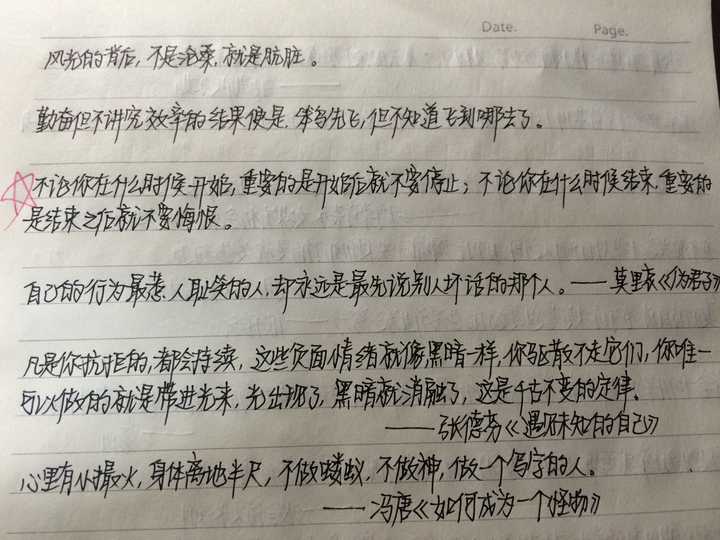 Date.
Page.
风光的背后，不是沧桑，就是肮脏。
勤奋但不讲究效率的结果便是，笨鸟先飞，但不知道飞到哪去了。
不论你在什么时候开始，重要的是开始后就不要停止；不论你在什么时候结束，重要的
是结束之后就不要悔恨。
自己的行为最惹人耻笑的人，却永远是最先说别人坏话的那个人。——莫里哀《伪君子》
凡是你抗拒的，都会持续，这些负面情绪就像黑暗一样，你驱散不走它们，你唯一
可以做的就是带进光来，光出现了，黑暗就消融了，这是千古不变的定律。
——张德芬《遇见未知的自己》
心里有小撮火，身体离地半尺，不做蝼蚁，不做神，做一个写字的人。
——冯唐《如何成为一个怪物》